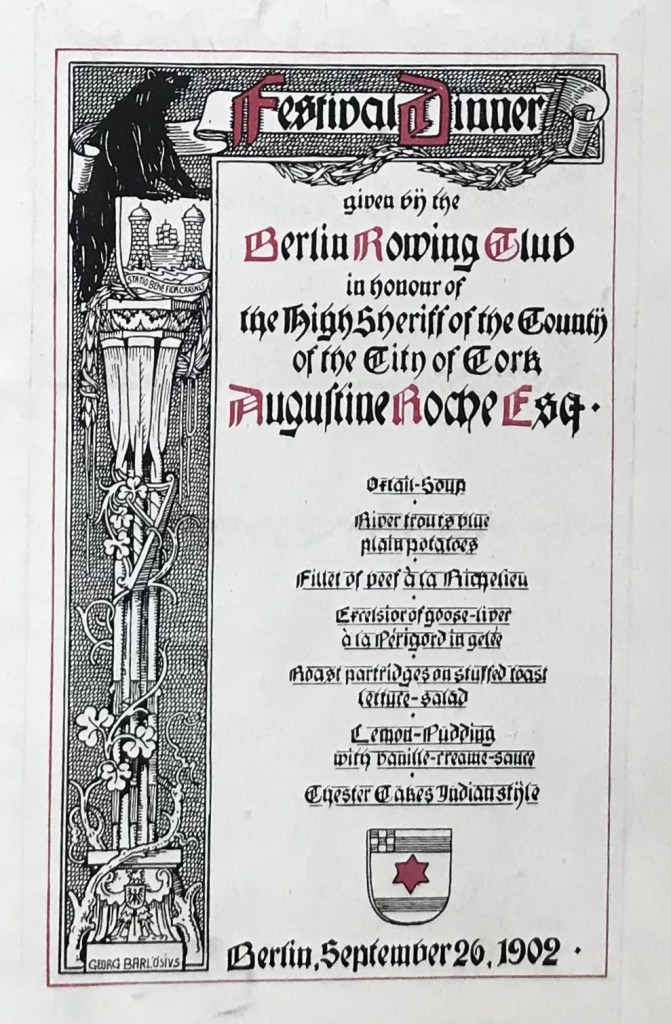 Festival Dinner
given bÿ the
Berlin Rowing Club
in honour of
the High Sheriff of the Countÿ
of the City of Cork
Augustine Roche Esq.
STATIO BENE FIDA CARINIS
Oxtail-Soup
River trouts blue
plain potatoes
Fillet of beef à la Richelieu
Excelsior of goose-liver
à la Périgord in gelée
Roast partridges on stuffed toast
lettuce-salad
Lemon-Pudding
with vanille-creame-sauce
Chester Cakes Indian stÿle
GEORG BARLÖSIVS
Berlin, September 26, 1902.